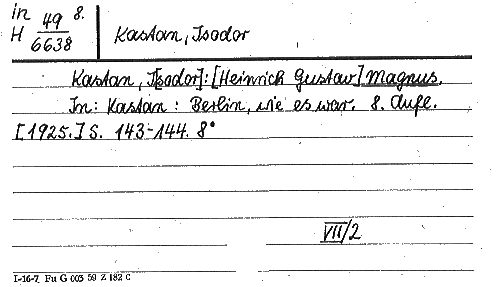 in 49 8.
H 6638
Kastan, Isodor
Kastan, I[sodor]: [Heinrich Gustav] Magnus.
In: Kastan: Berlin, wie es war. 8. Aufl.
[1925.] S. 143-144. 8°
VII/2
I-16-7 Fu G 003 59 Z 182 C